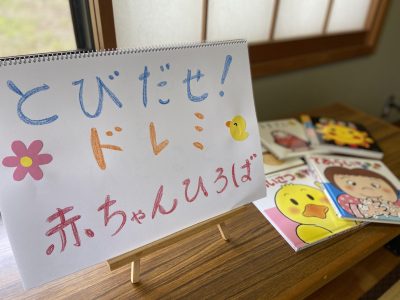 とびだせ!
ドレミ
赤ちゃんひろば